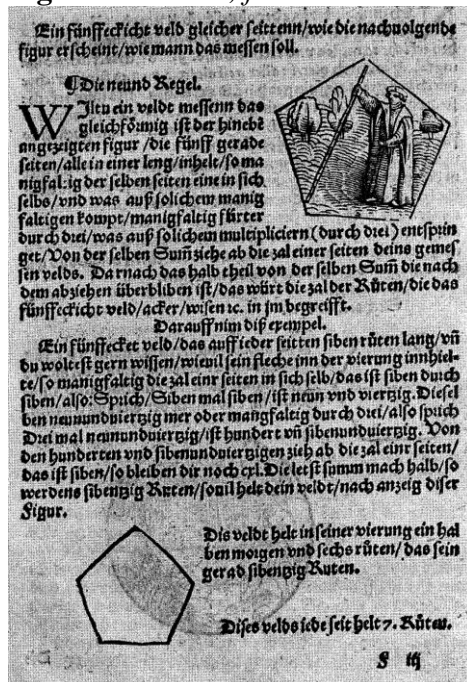 Ein fünffeckicht veld gleicher seittenn/wie die nachuolgende
figur erscheint/wie mann das messen soll.
¶Die neund Regel.
WIltu ein veldt messenn das
gleichförmig ist der hinebē
angezeigten figur/die fünff gerade
seiten/alle in einer leng/inhelt/so ma
nigfaltig der selben seiten eine in sich
selbs/vnd was auß solichem manig
faltigen kompt/manigfaltig fürter
durch drei/was auß solichem multipliciern (durch drei) entsprin
get/Von der selben Sum̄ ziehe ab die zal einer seiten deins gemes
sen velds. Darnach das halb theil von der selben Sum̄ die nach
dem abziehen überbliben ist/das würt die zal der Rüten/die das
fünffeckicht veld/acker/wisen ⁊c. in jm begreifft.
Darauff nim diß exempel.
Ein fünffecket veld/das auff ieder seitten siben rüten lang/vn̄
du woltest gern wissen/wieuil sein fleche inn der vierung innhiel-
te/so manigfaltig die zal einr seiten in sich selb/das ist siben durch
siben/also: Sprich/Siben mal siben/ist neun vnd viertzig. Diesel
ben neunundviertzig mer oder mangfaltig durch drei/also sprich
Drei mal neunundviertzig/ist hundert vn̄ sibenundviertzig. Von
den hunderten vnd sibenundviertzigen zieh ab die zal einr seiten/
das ist siben/so bleiben dir noch cxl. Die letst summ mach halb/so
werdens sibentzig Ruten/souil helt dein veldt/nach anzeig diser
Figur.
Dis veldt helt in seiner vierung ein hal
ben morgen vnd sechs rüten/das sein
gerad sibentzig Ruten.
Dises velds iede seit helt 7. Rüten.